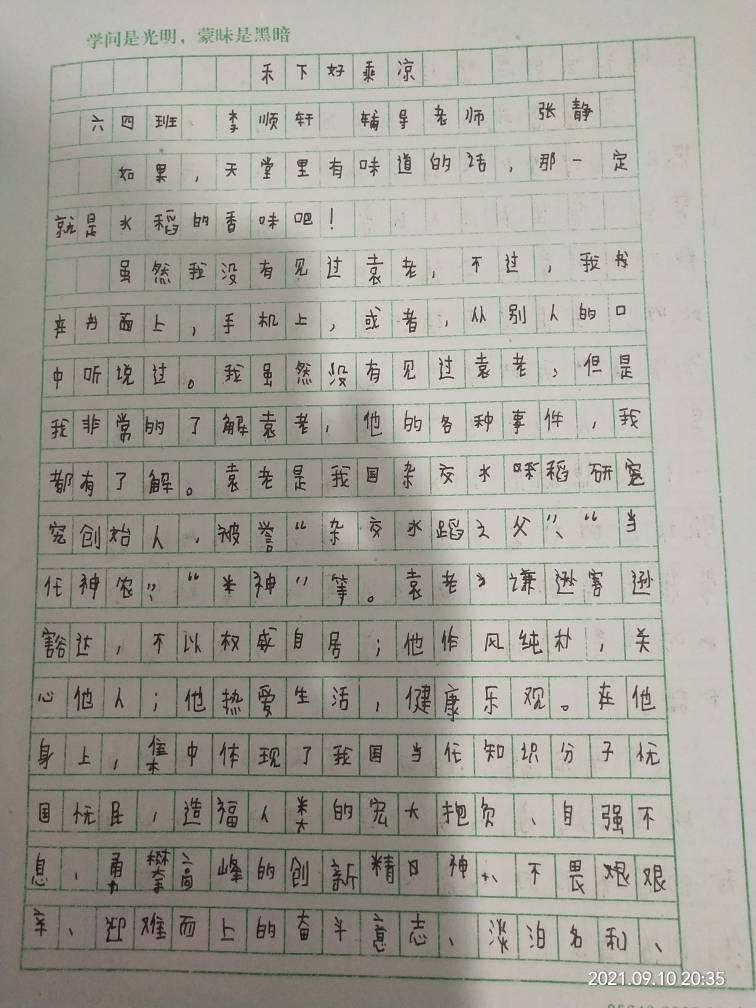 学问是光明，蒙昧是黑暗
禾下好乘凉
六四班 李顺轩 辅导老师 张静
如果，天堂里有味道的话，那一定
就是水稻的香味吧！
虽然我没有见过袁老，不过，我
在书面上，手机上，或者，从别人的口
中听说过。我虽然没有见过袁老，但是
我非常的了解袁老，他的各种事件，我
都有了解。袁老是我国杂交水稻研
究创始人，被誉“杂交水蹈之父”、“当
代神农”“米神”等。袁老谦逊
豁达，不以权威自居；他作风纯朴，关
心他人；他热爱生活，健康乐观。在他
身上，集中体现了我国当代知识分子忧
国忧民，造福人类的宏大抱负、自强不
息、勇攀高峰的创新精神、不畏艰
辛、迎难而上的奋斗意志、淡泊名利、
2021.09.10 20:35